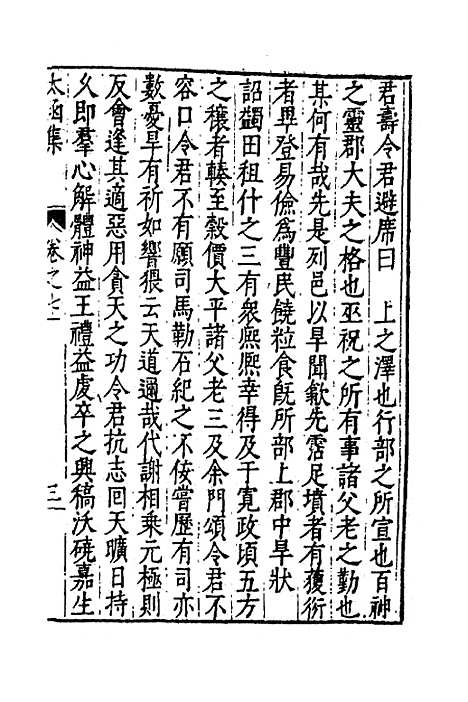 君壽令君避席曰　上之澤也行部之所宣也百神
之靈郡大夫之格也巫祝之所有事諸父老之勤也
某何有哉先是列邑以旱聞歙先霑足墳者有獲衍
者畢登易儉爲豐民饒粒食旣所部上郡中旱狀
詔蠲田租什之三有衆熈熈幸得及于寛政頃五方
之穣者輳至穀價大平諸父老三及余門頌令君不
容口令君不有願司馬勒石紀之不佞嘗歷有司亦
數憂旱有祈如響猥云天道邇哉代謝相乗元極則
反會逢其適惡用貪天之功令君抗志囘天曠日持
乆即羣心解體神益王禮益䖍卒之興稿沃磽嘉生
太函集　卷之七　三